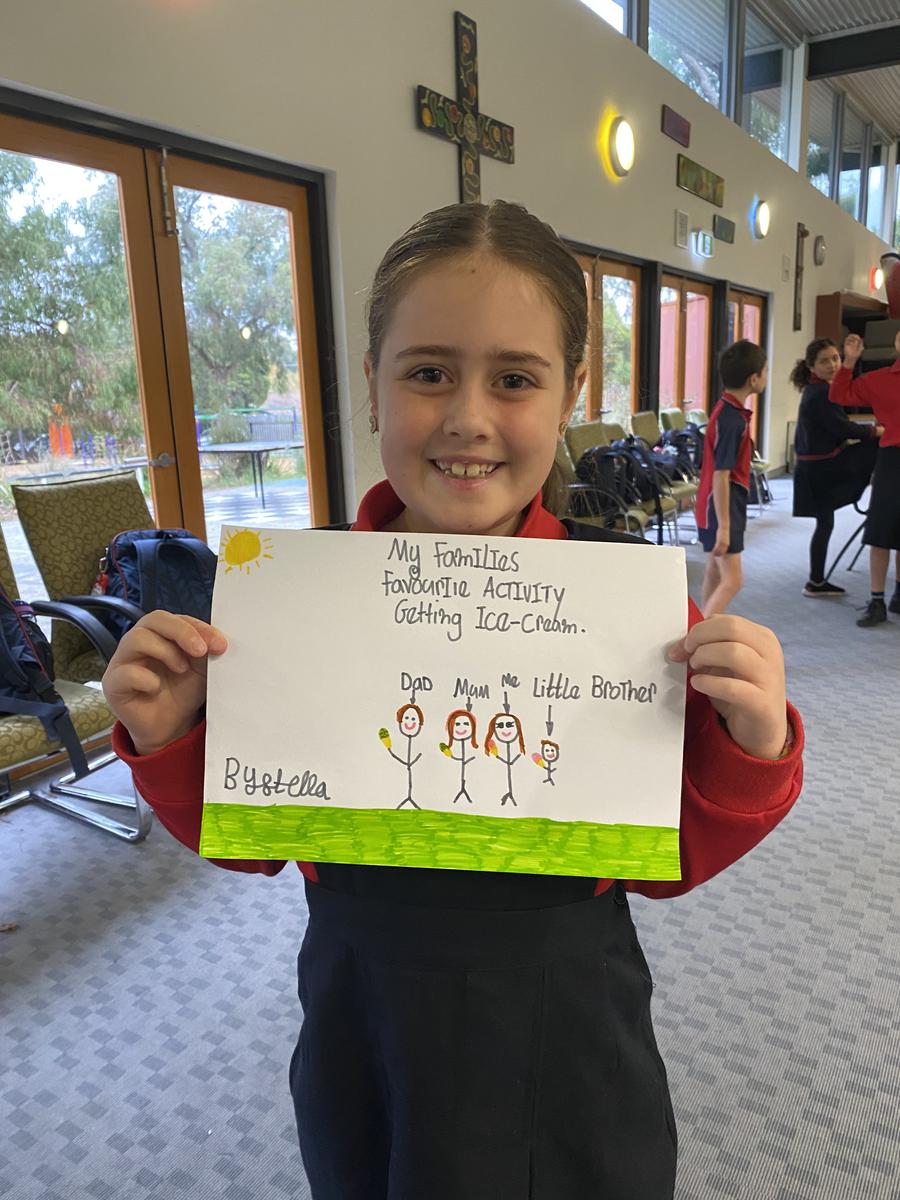 My Families
Favourtie ACTIVITY
Getting Ice-Cream.
Dad Mum Me Little Brother
By stella